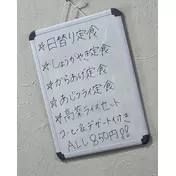 ☆日替り定食
☆しょうがやき定食
☆からあげ定食
☆あじフライ定食
☆高菜ライスセット
コーヒー&デザート付き
ALL 850円